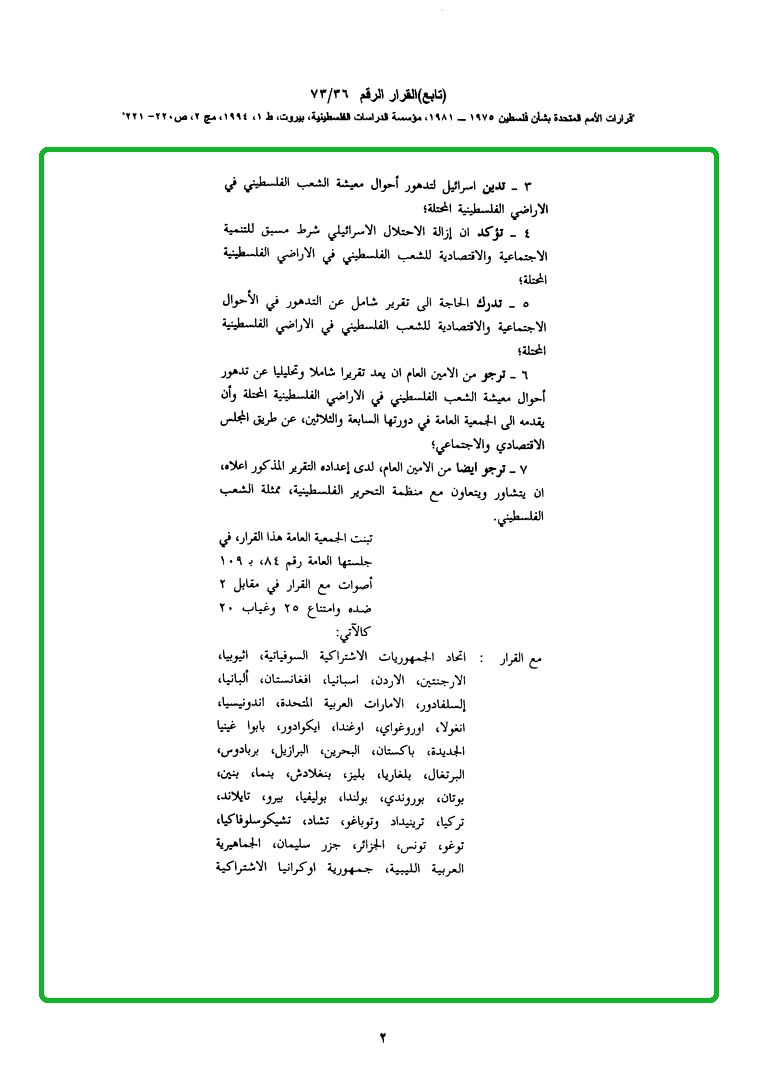 (تابع)القرار الرقم ٧٣/٣٦
"قرارات الأمم المتحدة بشأن فلسطين ١٩٧٥ ــ ١٩٨١، مؤسسة الدراسات الفلسطينية، بيروت، ط ١، ١٩٩٤، مج ٢، ص٢٢٠- ٢٢١"
٣ ـ تدين اسرائيل لتدهور أحوال معيشة الشعب الفلسطيني في
الاراضي الفلسطينية المحتلة؛
٤ ـ تؤكد ان إزالة الاحتلال الاسرائيلي شرط مسبق للتنمية
الاجتماعية والاقتصادية للشعب الفلسطيني في الاراضي الفلسطينية
المحتلة؛
٥ ـ تدرك الحاجة الى تقرير شامل عن التدهور في الأحوال
الاجتماعية والاقتصادية للشعب الفلسطيني في الاراضي الفلسطينية
المحتلة؛
٦ ـ ترجو من الامين العام ان يعد تقريرا شاملا وتحليليا عن تدهور
أحوال معيشة الشعب الفلسطيني في الاراضي الفلسطينية المحتلة وأن
يقدمه الى الجمعية العامة في دورتها السابعة والثلاثين، عن طريق المجلس
الاقتصادي والاجتماعي؛
٧ ـ ترجو ايضا من الامين العام، لدى إعداده التقرير المذكور اعلاه،
ان يتشاور ويتعاون مع منظمة التحرير الفلسطينية، ممثلة الشعب
الفلسطيني.
تبنت الجمعية العامة هذا القرار، في
جلستها العامة رقم ٨٤، بـ ١٠٩
أصوات مع القرار في مقابل ٢
ضده وامتناع ٢٥ وغياب ٢٠
كالآتي:
مع القرار : اتحاد الجمهوريات الاشتراكية السوفياتية، اثيوبيا،
الارجنتين، الاردن، اسبانيا، افغانستان، ألبانيا،
إلسلفادور، الامارات العربية المتحدة، اندونيسيا،
انغولا، اوروغواي، اوغندا، ايكوادور، بابوا غينيا
الجديدة، باكستان، البحرين، البرازيل، بربادوس،
البرتغال، بلغاريا، بليز، بنغلادش، بنما، بنين،
بوتان، بوروندي، بولندا، بوليفيا، بيرو، تايلاند،
تركيا، ترينيداد وتوباغو، تشاد، تشيكوسلوفاكيا،
توغو، تونس، الجزائر، جزر سليمان، الجماهيرية
العربية الليبية، جمهورية اوكرانيا الاشتراكية
٢